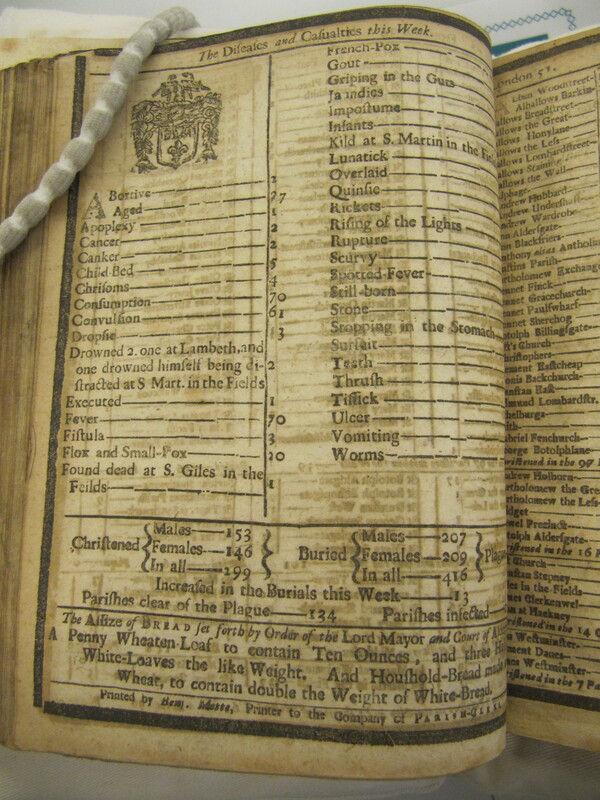 The Diseases and Casualties this Week.
A Bortive 2
Aged 27
Apoplexy 1
Cancer 2
Canker 2
Child-Bed 5
Chrisoms 4
Consumption 70
Convulsion 61
Dropsie 13
Drowned 2. one at Lambeth, and
one drowned himself being di-
stracted at S Mart. in the Fields 2
Executed 1
Fever 70
Fistula 3
Flox and Small-Pox 20
Found dead at S. Giles in the
Feilds 1
French-Pox
Gout
Griping in the Guts
Jaundies
Impostume
Infants
Kild at S. Martin in the
Lunatick
Overlaid
Quinsie
Rickets
Rising of the Lights
Rupture
Scurvy
Spotted Fever
Still-born
Stone
Stopping in the Stomach
Surfeit
Teeth
Thrush
Tissick
Ulcer
Vomiting
Worms
Christened { Males 153 Females 146 In all 299 }
Buried { Males 207 Females 209 In all 416 }
Increased in the Burials this Week 13
Parishes clear of the Plague 134 Parishes infected
The Assize of BREAD set forth by Order of the Lord Mayor and Court of
A Penny Wheaten-Loaf to contain Ten Ounces, and three
White-Loaves the like Weight. And Houshold-Bread made
Wheat, to contain double the Weight of White-Bread.
Printed by Printer to the Company of
Woodstreet
Alhallows Barkin
Breadstreet
the Great
Honylane
the Less
Lombardstreet
the Wall
Hubbard
Wardrobe
Aldersgate
Blackfriers
alias
Parish
Exchange
Finck
Gracechurch
Paulswharf
Sherehog
Billingsgate
Church
Eastcheap
Backchurch
Lombardstr.
Fenchurch
Botolphlane
in the 97
Holborn
the Great
the Less
Precinct
Aldersgate
in the 16
Church
Stepney
in the Fields
Clerkenwel
at Hackney
in the 14
Westminster
Danes
Westminster
in the 7